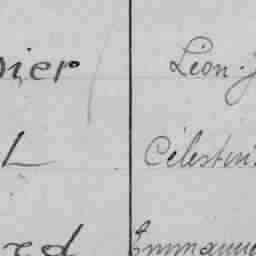 pier Léon J
L Célestin
rd Emmanue